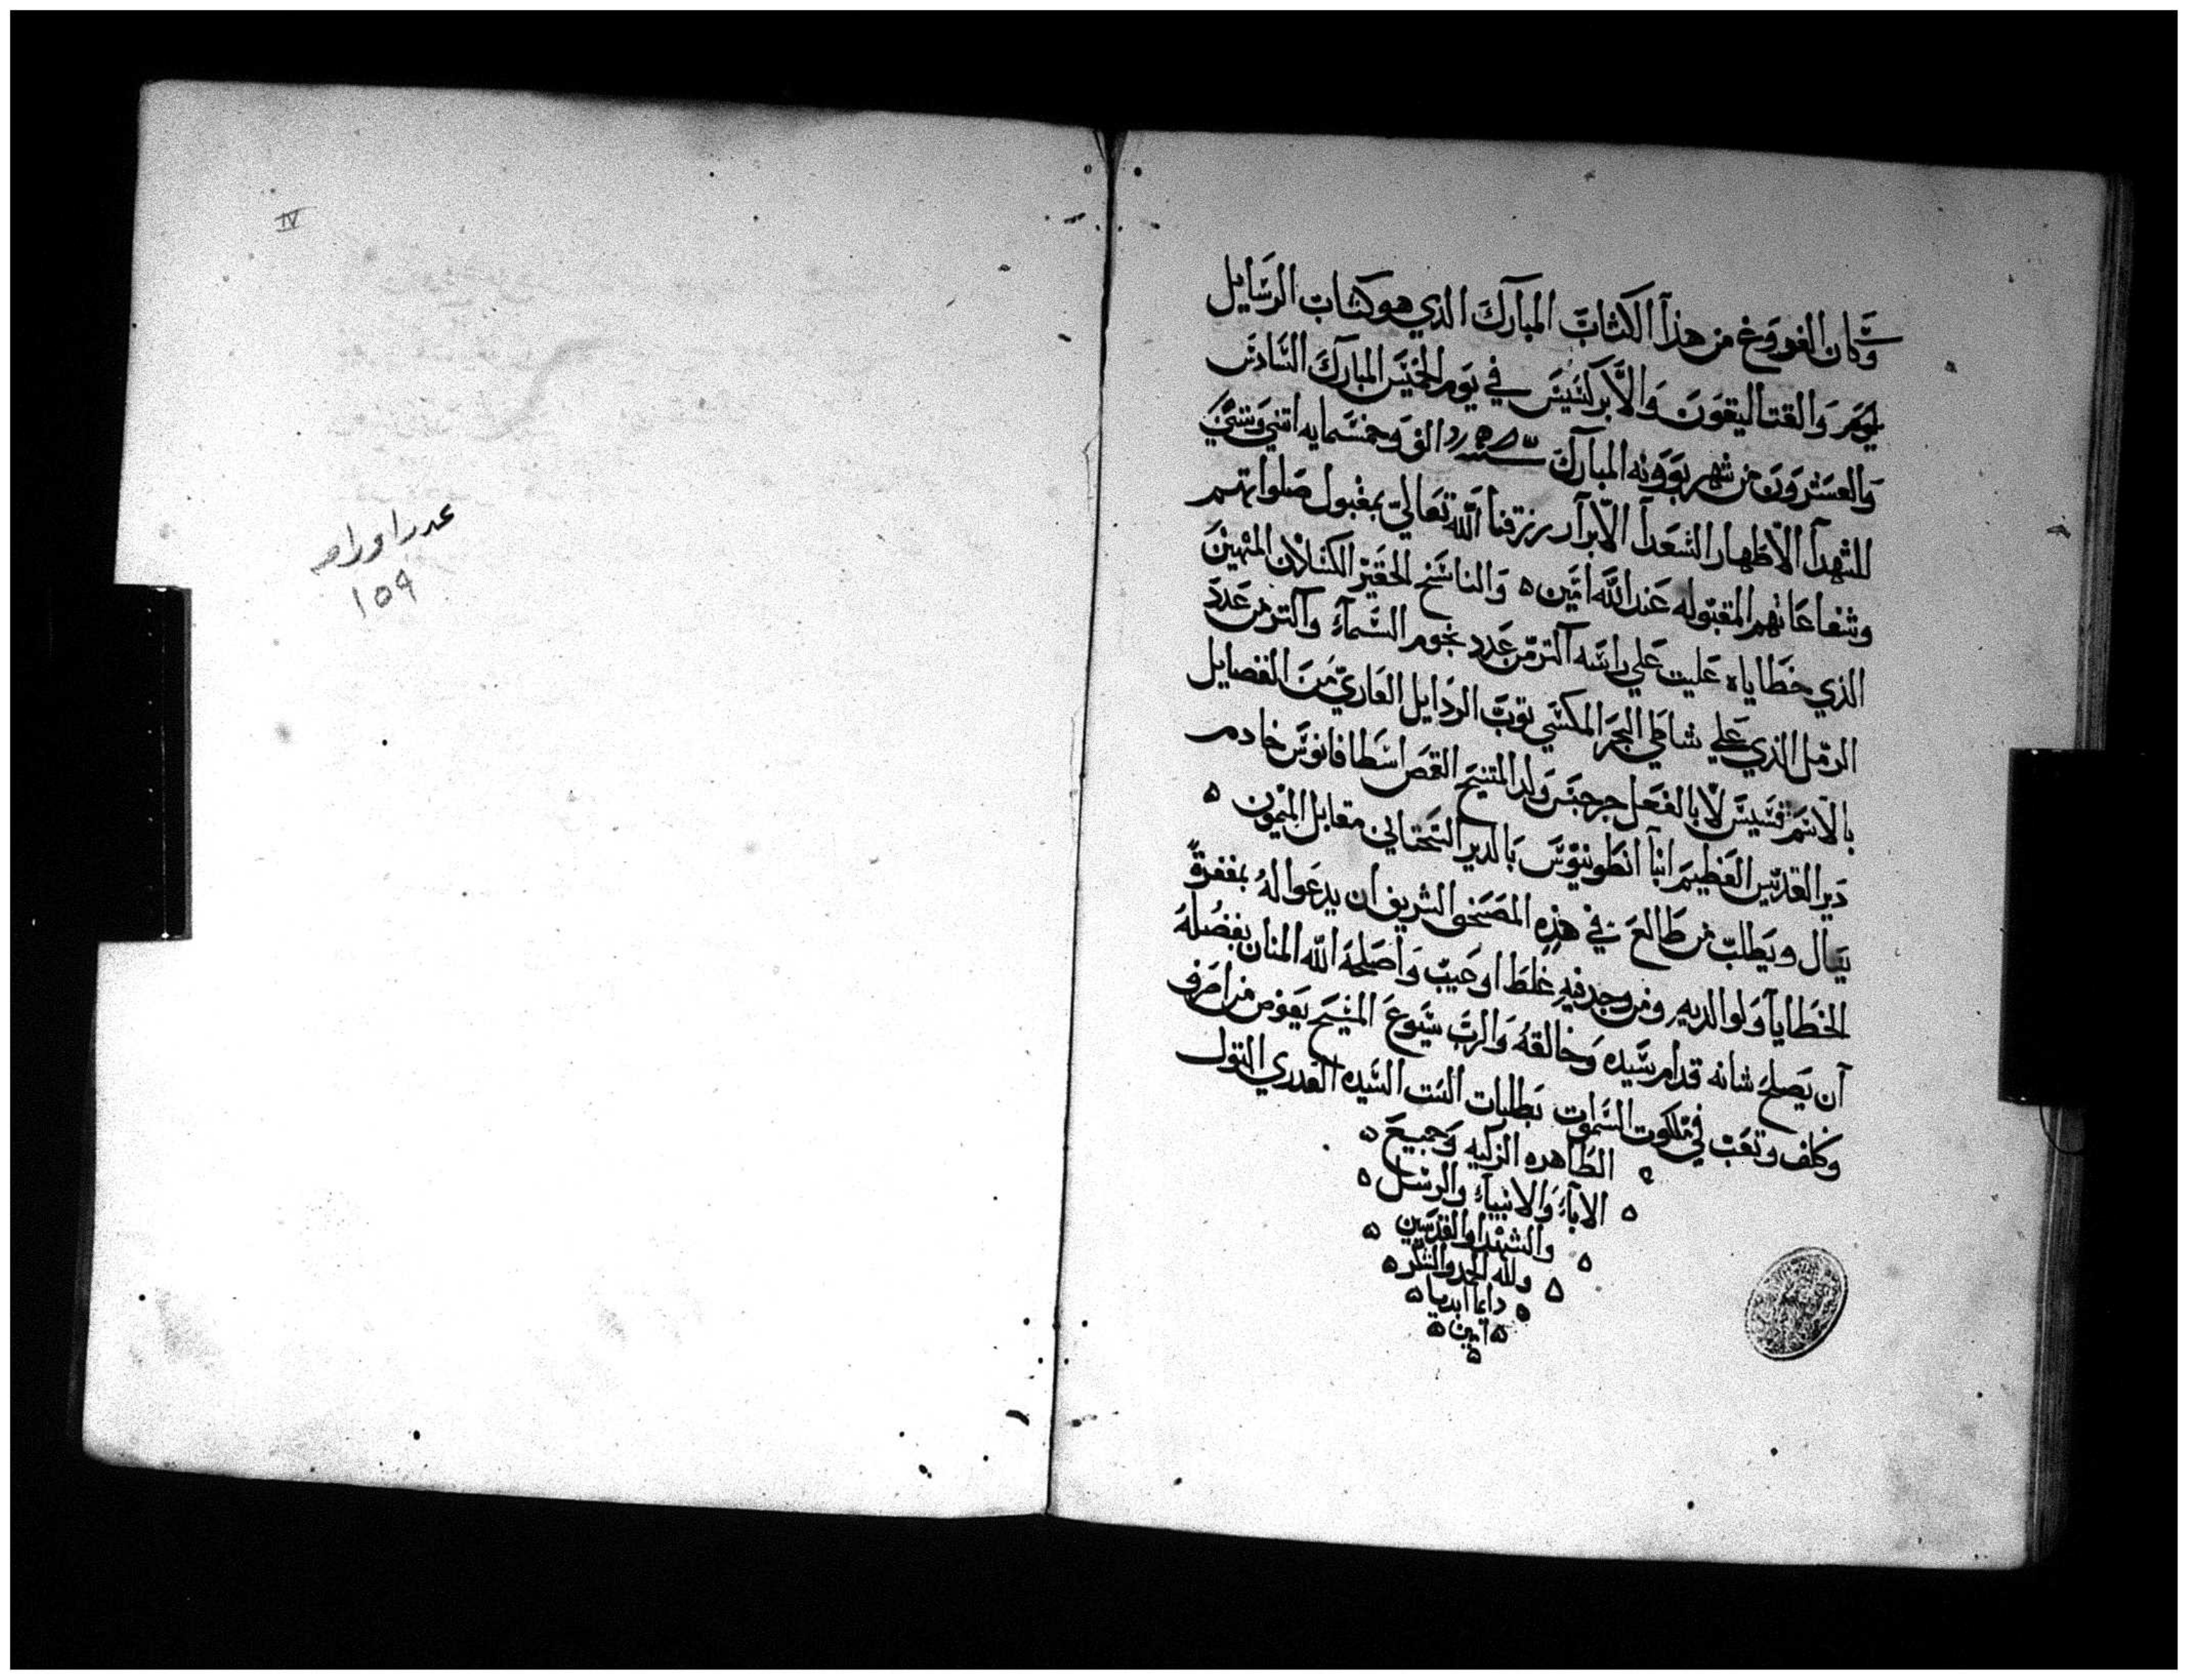 وكان الفروغ من هذا الكتاب المبارك الذي هو كتاب الرسايل
والقتاليقون والابركسيس في يوم الخميس المبارك السادس
والعشرون من شهر بوونه المبارك سنة الف وخمسمايه اتني وستين
للشهدآ الاطهار السعدآ الابرار رزقنا الله تعالي بمقبول صلواتهم
وشفاعاتهم المقبوله عند الله امين ه والناسخ الحقير الكسلان المهين
الذي خطاياه عليت علي راسه اكتر من عدد نجوم السمآء واكتر من عدد
الرمل الذي علي شاطي البحر المكتسي بتوب الردايل العاري من الفضايل
بالاسم قسيس لا بالفعل جرجس ولد المتنيح القمص اسطافانوس خادم
دير القديس العظيم انبا انطونيوس بالدير التحتاني مقابل الميمون ه
يسال ويطلب من طالع في هذه المصحف الشريف ان يدعوا له بمغفرة
الخطايا ولوالديه ومن وجد فيه غلط او عيب واصلحه الله المنان بفضله
ان يصلح شانه قدام سيده وخالقه والرب يسوع المسيح يعوض من اصرف
وكلف وتعب في ملكوت السموات بطلبات الست السيده العدري البتول
الطاهره الزكيه وجميع ه
ه الاباء والانبياء والرسل ه
ه والشهدا والقديسين ه
ه ولله المجد والشكر ه
ه دايما ابديا ه
ه امين ه
ه
IV
عدد اوراقه
١٥٩